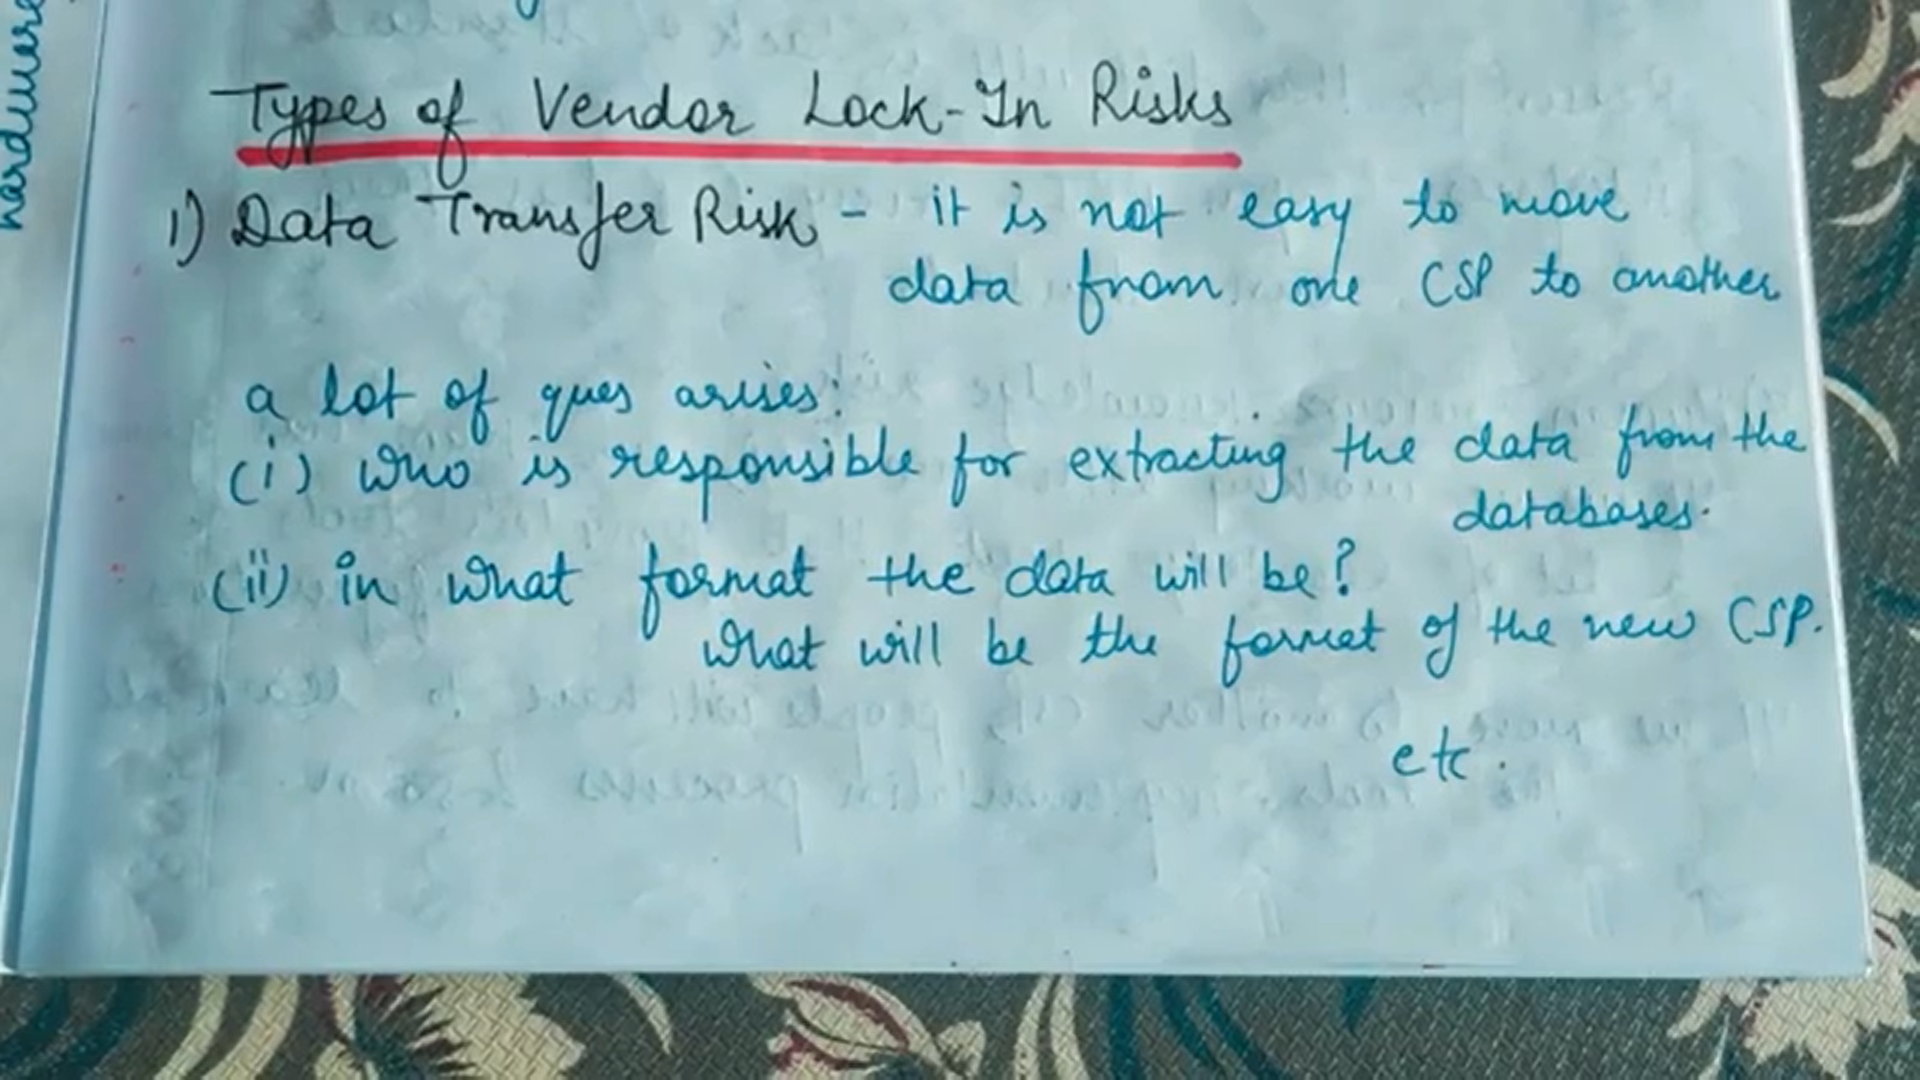 hardware
Types of Vendor Lock-In Risks
1) Data Transfer Risk - it is not easy to move
data from one CSP to another
a lot of ques arises:
(i) who is responsible for extracting the data from the
databases.
(ii) in what format the data will be?
what will be the format of the new CSP.
etc.